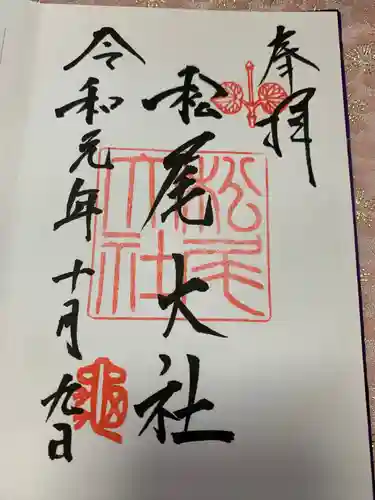 奉拝
松尾大社
令和元年十月九日
松尾大社
亀